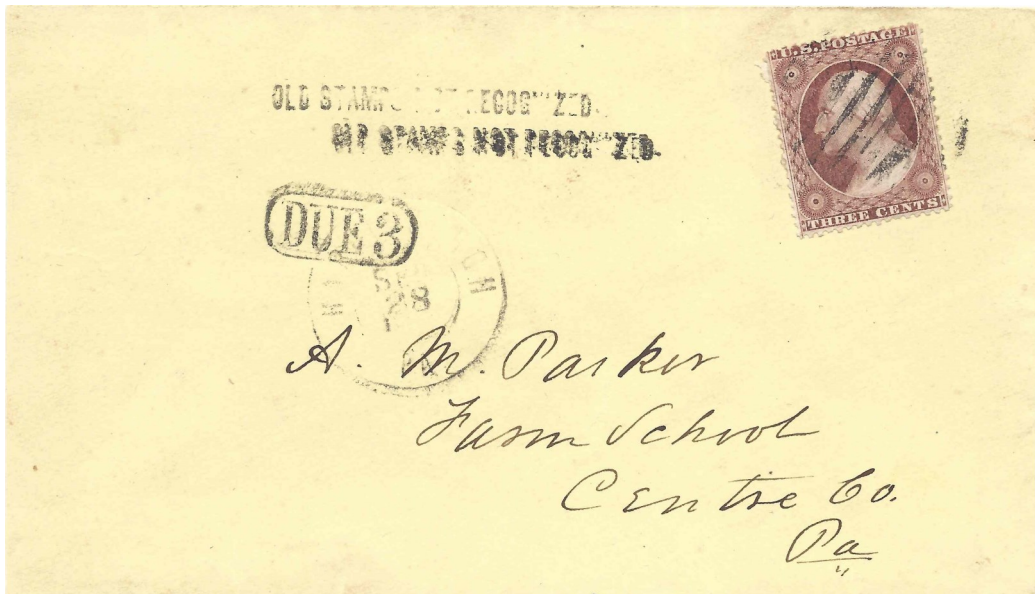 U.S. POSTAGE
THREE CENTS
OLD STAMPS NOT RECOGNIZED.
OLD STAMPS NOT RECOGNIZED.
DUE 3
28
A. M. Parker
Farm School
Centre Co.
Pa